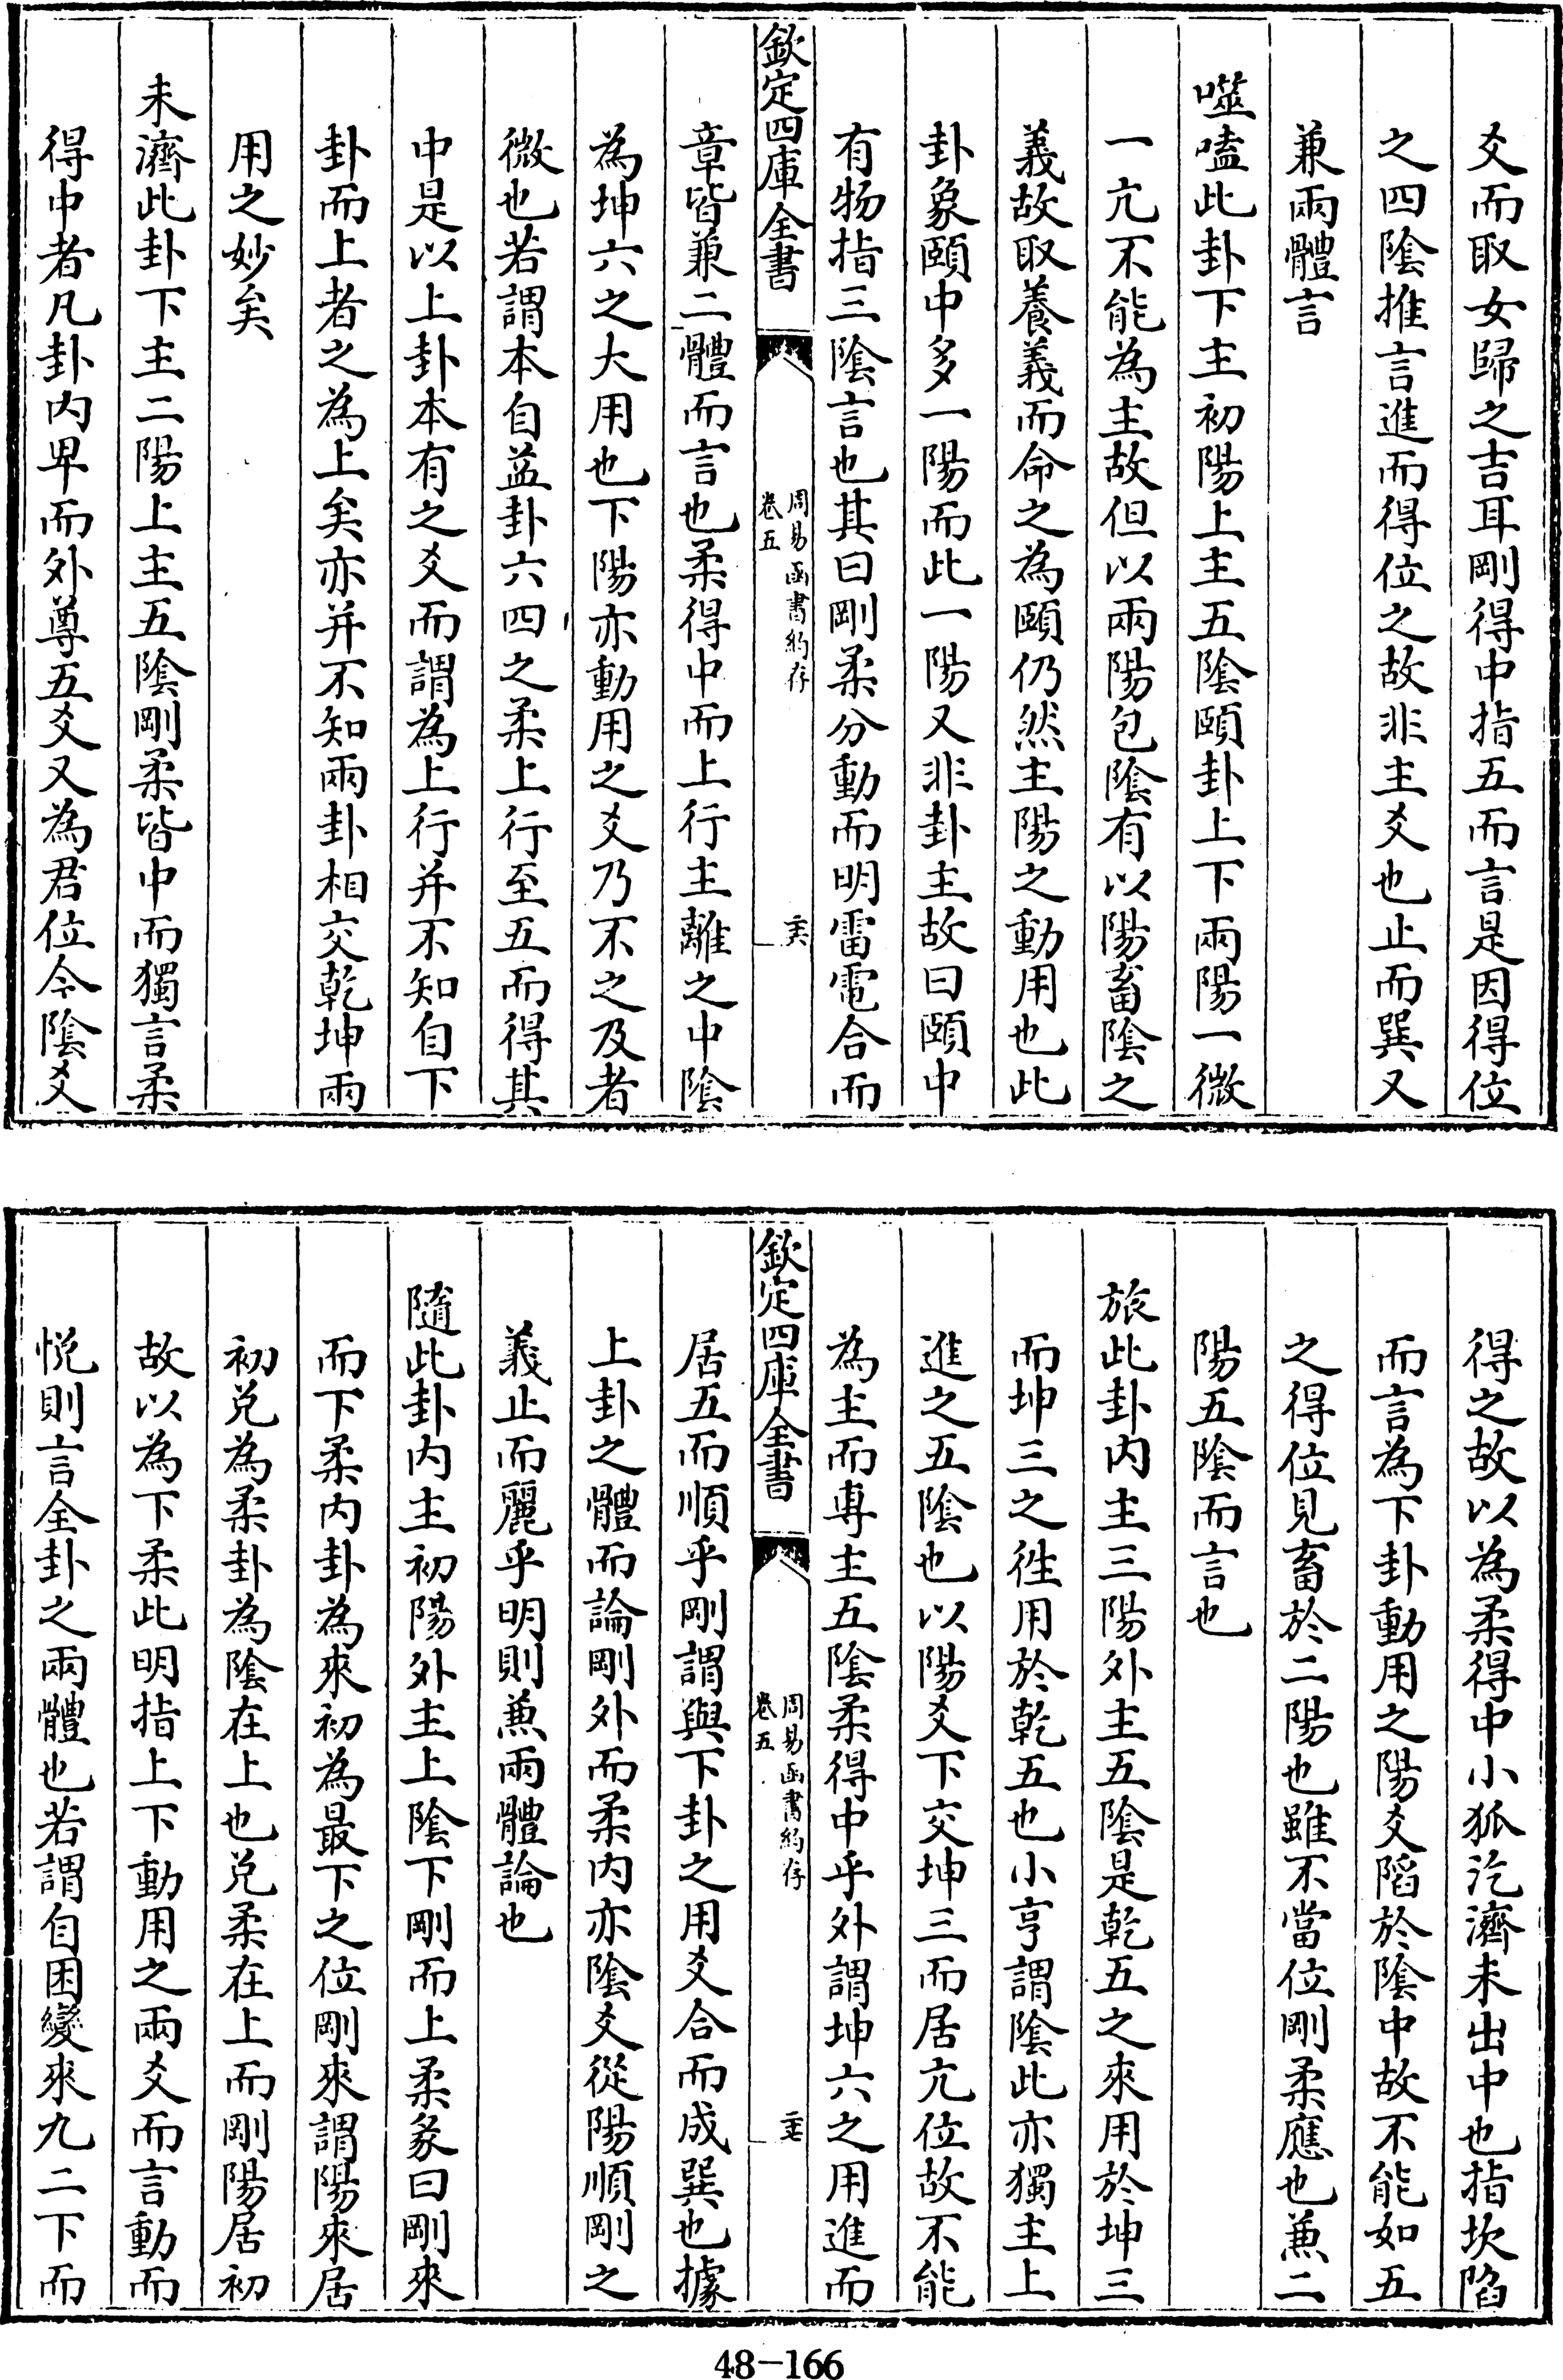 爻而取女歸之吉耳剛得中指五而言是因得位
之四陰推言進而得位之故非主爻也止而巽又
兼兩體言
噬嗑此卦下主初陽上主五陰頤卦上下兩陽一微
一亢不能為主故但以兩陽包陰有以陽畜陰之
義故取養義而命之為頤仍然主陽之動用也此
卦象頤中多一陽而此一陽又非卦主故曰頤中
有物指三陰言也其曰剛柔分動而明雷電合而
欽定四庫全書
周易函書約存
卷五
三六
章皆兼二體而言也柔得中而上行主離之中陰
為坤六之大用也下陽亦動用之爻乃不之及者
微也若謂本自益卦六四之柔上行至五而得其
中是以上卦本有之爻而謂為上行并不知自下
卦而上者之為上矣亦并不知兩卦相交乾坤兩
用之妙矣
未濟此卦下主二陽上主五陰剛柔皆中而獨言柔
得中者凡卦内卑而外尊五爻又為君位今陰爻
得之故以為柔得中小狐汔濟未出中也指坎陷
而言為下卦動用之陽爻䧟於陰中故不能如五
之得位見畜於二陽也雖不當位剛柔應也兼二
陽五陰而言也
旅此卦内主三陽外主五陰是乾五之來用於坤三
而坤三之徃用於乾五也小亨謂陰此亦獨主上
進之五陰也以陽爻下交坤三而居亢位故不能
為主而專主五陰柔得中乎外謂坤六之用進而
欽定四庫全書
周易函書約存
卷五
三七
居五而順乎剛謂與下卦之用爻合而成巽也據
上卦之體而論剛外而柔内亦陰爻從陽順剛之
義止而麗乎明則兼兩體論也
隨此卦内主初陽外主上陰下剛而上柔彖曰剛來
而下柔内卦為來初為最下之位剛來謂陽來居
初兌為柔卦為陰在上也兌柔在上而剛陽居初
故以為下柔此明指上下動用之兩爻而言動而
悅則言全卦之兩體也若謂自困變來九二下而
48-166